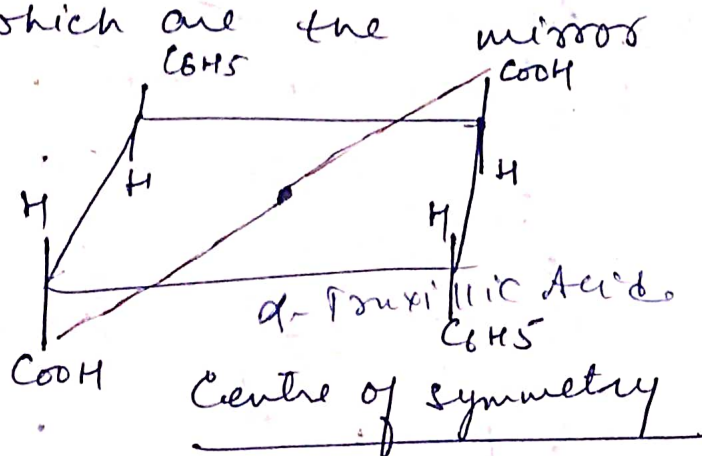 which are the mirror
C6H5
COOH
H
H
H
H
α-Truxillic Acid.
C6H5
COOH
Centre of symmetry